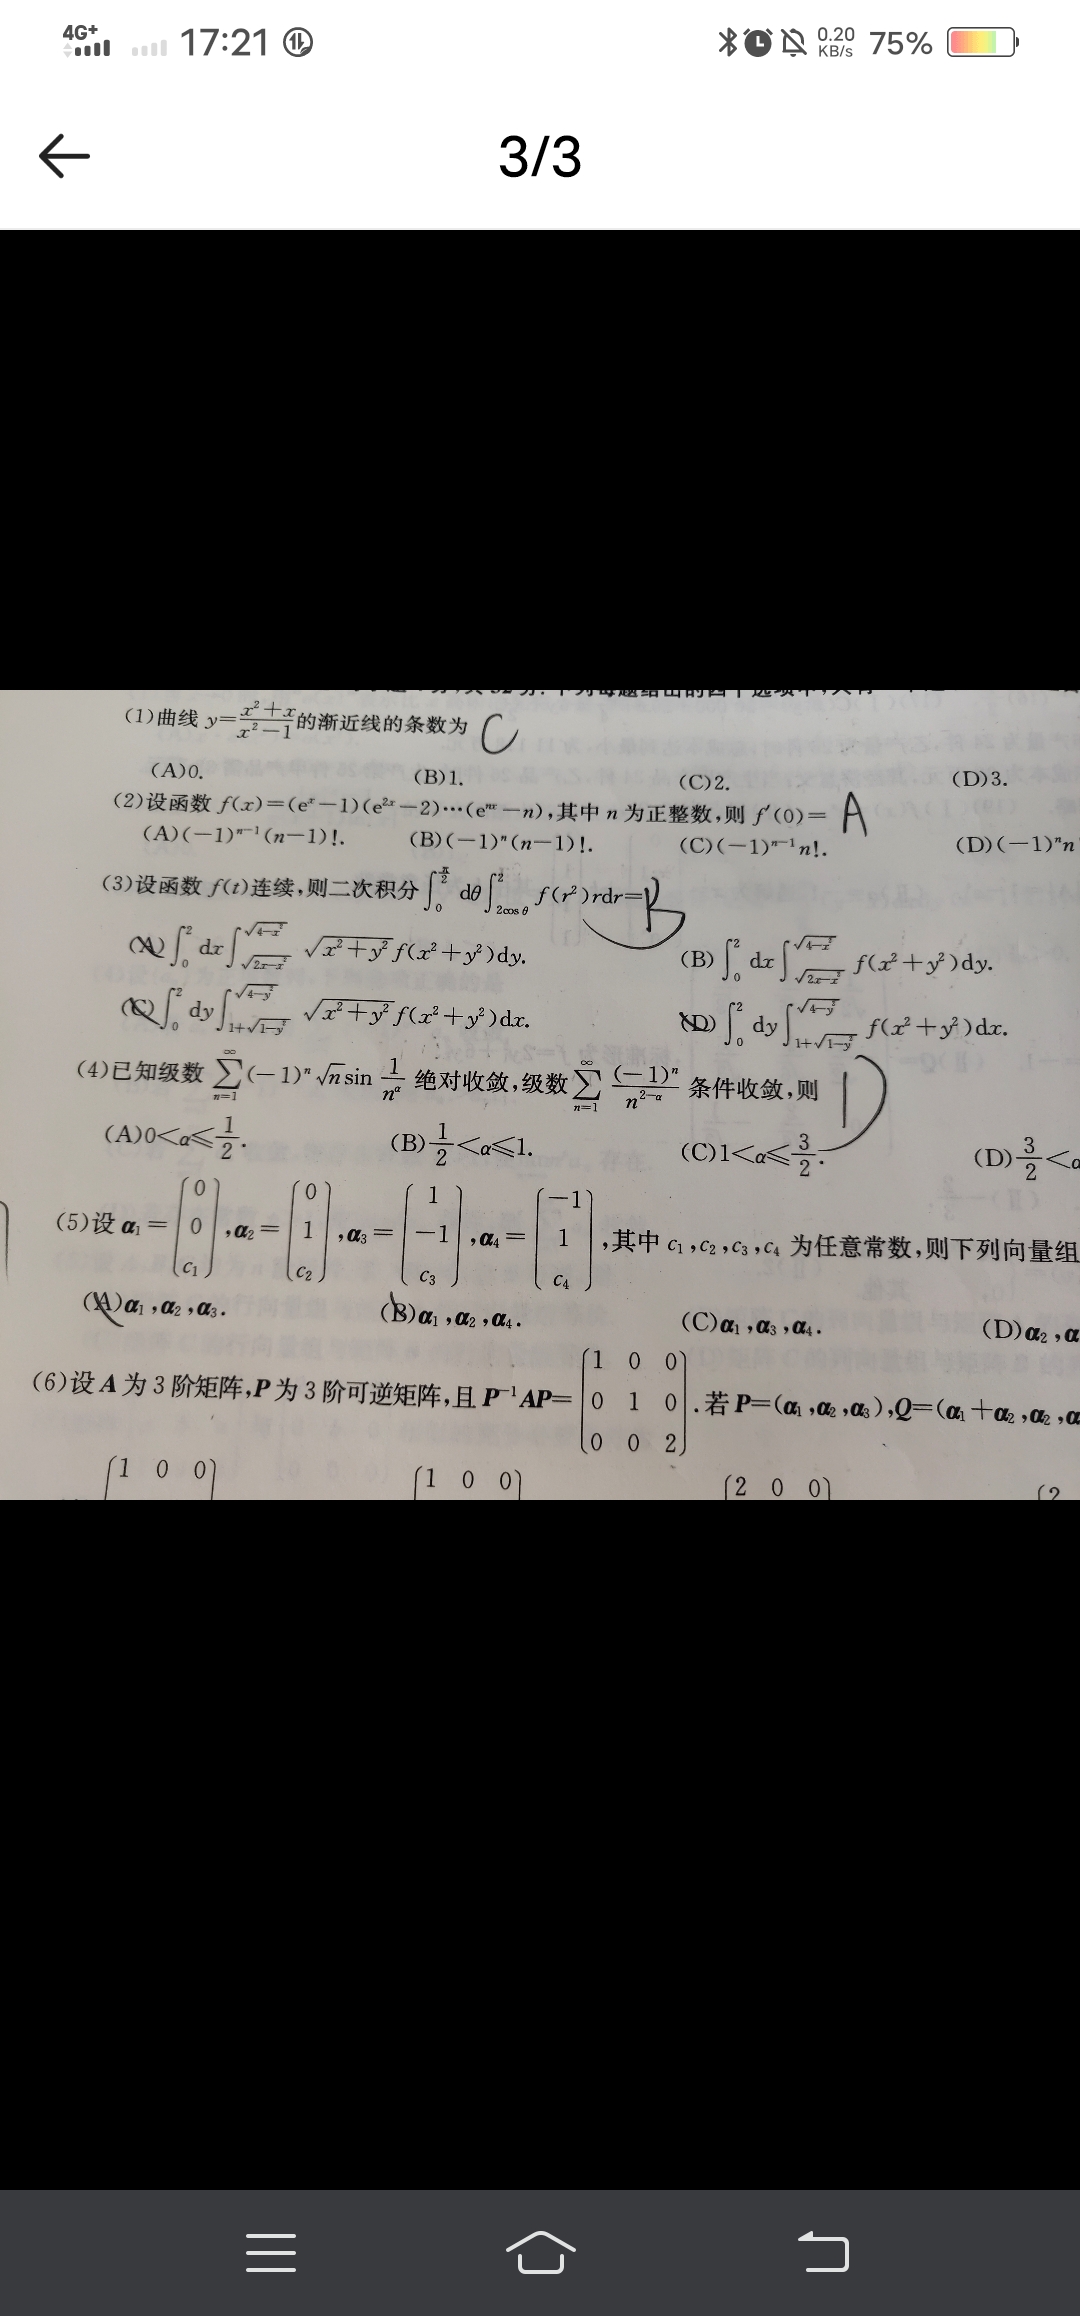 4G+ 17:21 0.20 KB/s 75%
3/3
(1)曲线 y=\frac{x²+x}{x²-1}的渐近线的条数为 C
(A)0. (B)1. (C)2. (D)3.
(2)设函数 f(x)=(eˣ-1)(e²ˣ-2)…(eⁿˣ-n),其中 n 为正整数,则 f′(0)= A
(A)(-1)ⁿ⁻¹(n-1)!. (B)(-1)ⁿ(n-1)!. (C)(-1)ⁿ⁻¹n!. (D)(-1)ⁿn
(3)设函数 f(t)连续,则二次积分 ∫_0^{\frac{π}{2}} dθ ∫_{2cos θ}^2 f(r²)rdr= B
(A) ∫_0^2 dx ∫_{\sqrt{2x-x²}}^{\sqrt{4-x²}} \sqrt{x²+y²} f(x²+y²)dy. (B) ∫_0^2 dx ∫_{\sqrt{2x-x²}}^{\sqrt{4-x²}} f(x²+y²)dy.
(C) ∫_0^2 dy ∫_{1+\sqrt{1-y²}}^{\sqrt{4-y²}} \sqrt{x²+y²} f(x²+y²)dx. (D) ∫_0^2 dy ∫_{1+\sqrt{1-y²}}^{\sqrt{4-y²}} f(x²+y²)dx.
(4)已知级数 ∑_{n=1}^∞ (-1)ⁿ \sqrt{n} sin \frac{1}{n^α} 绝对收敛,级数 ∑_{n=1}^∞ \frac{(-1)ⁿ}{n^{2-α}} 条件收敛,则 D
(A)0<α≤\frac{1}{2}. (B)\frac{1}{2}<α≤1. (C)1<α≤\frac{3}{2}. (D)\frac{3}{2}<α
(5)设 α₁=(0 0 c₁),α₂=(0 1 c₂),α₃=(1 -1 c₃),α₄=(-1 1 c₄),其中 c₁,c₂,c₃,c₄ 为任意常数,则下列向量组
(A)α₁,α₂,α₃. (B)α₁,α₂,α₄. (C)α₁,α₃,α₄. (D)α₂,α
(6)设 A 为 3 阶矩阵,P 为 3 阶可逆矩阵,且 P⁻¹AP=(1 0 0 0 1 0 0 0 2).若 P=(α₁,α₂,α₃),Q=(α₁+α₂,α₂,α
(1 0 0) (1 0 0) (2 0 0) (2